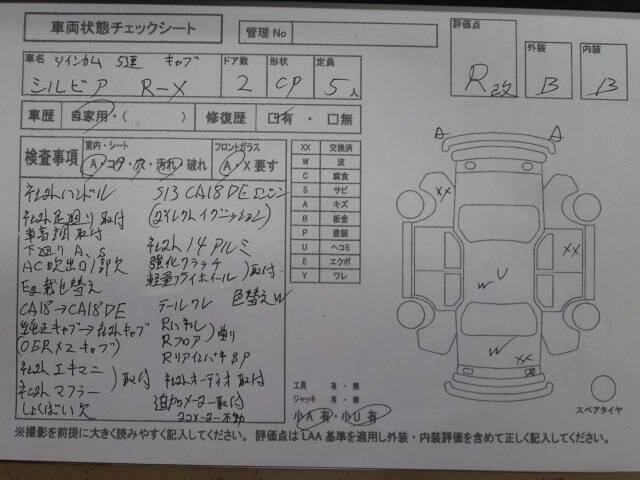 車両状態チェックシート
管理No
評価点
R改
外装
B
内装
B
車名 ツインカム 5速 キャブ
シルビア R-X
ドア数
2
形状
CP
定員
5人
車歴 自家用・( )
修復歴 有・無
検査事項
室内・シート
A・コゲ・穴・汚れ・破れ
フロントガラス
A・X要す
社外ハンドル
社外足廻り取付
車高調取付
下廻りA、S
AC吹出口1部欠
Eg載せ替え
CA18→CA18DE
純正キャブ→社外キャブ
(OERX2キャブ)
社外エキマニ
社外マフラー
取付
しょくばい欠
S13 CA18DEエンジン
(ダイレクトイグニッション)
社外14アルミ
強化クラッチ
軽量フライホイール
取付
色替えW
テールワレ
Rパネル
Rフロア
曲り
RリアインパネBP
社外オーディオ取付
追加メーター取付
タコメーター不動
XX 交換済
W 波
C 腐食
S サビ
A キズ
B 板金
P 塗装
U ヘコミ
E エクボ
Y ワレ
工具 有・無
ジャッキ 有・無
小A有・小U有
A
A
XX
XX
W
U
W
XX
スペアタイヤ
※撮影を前提に大きく読みやすく記入してください。 評価点はLAA基準を適用し外装・内装評価を含めて正しく記入してください。